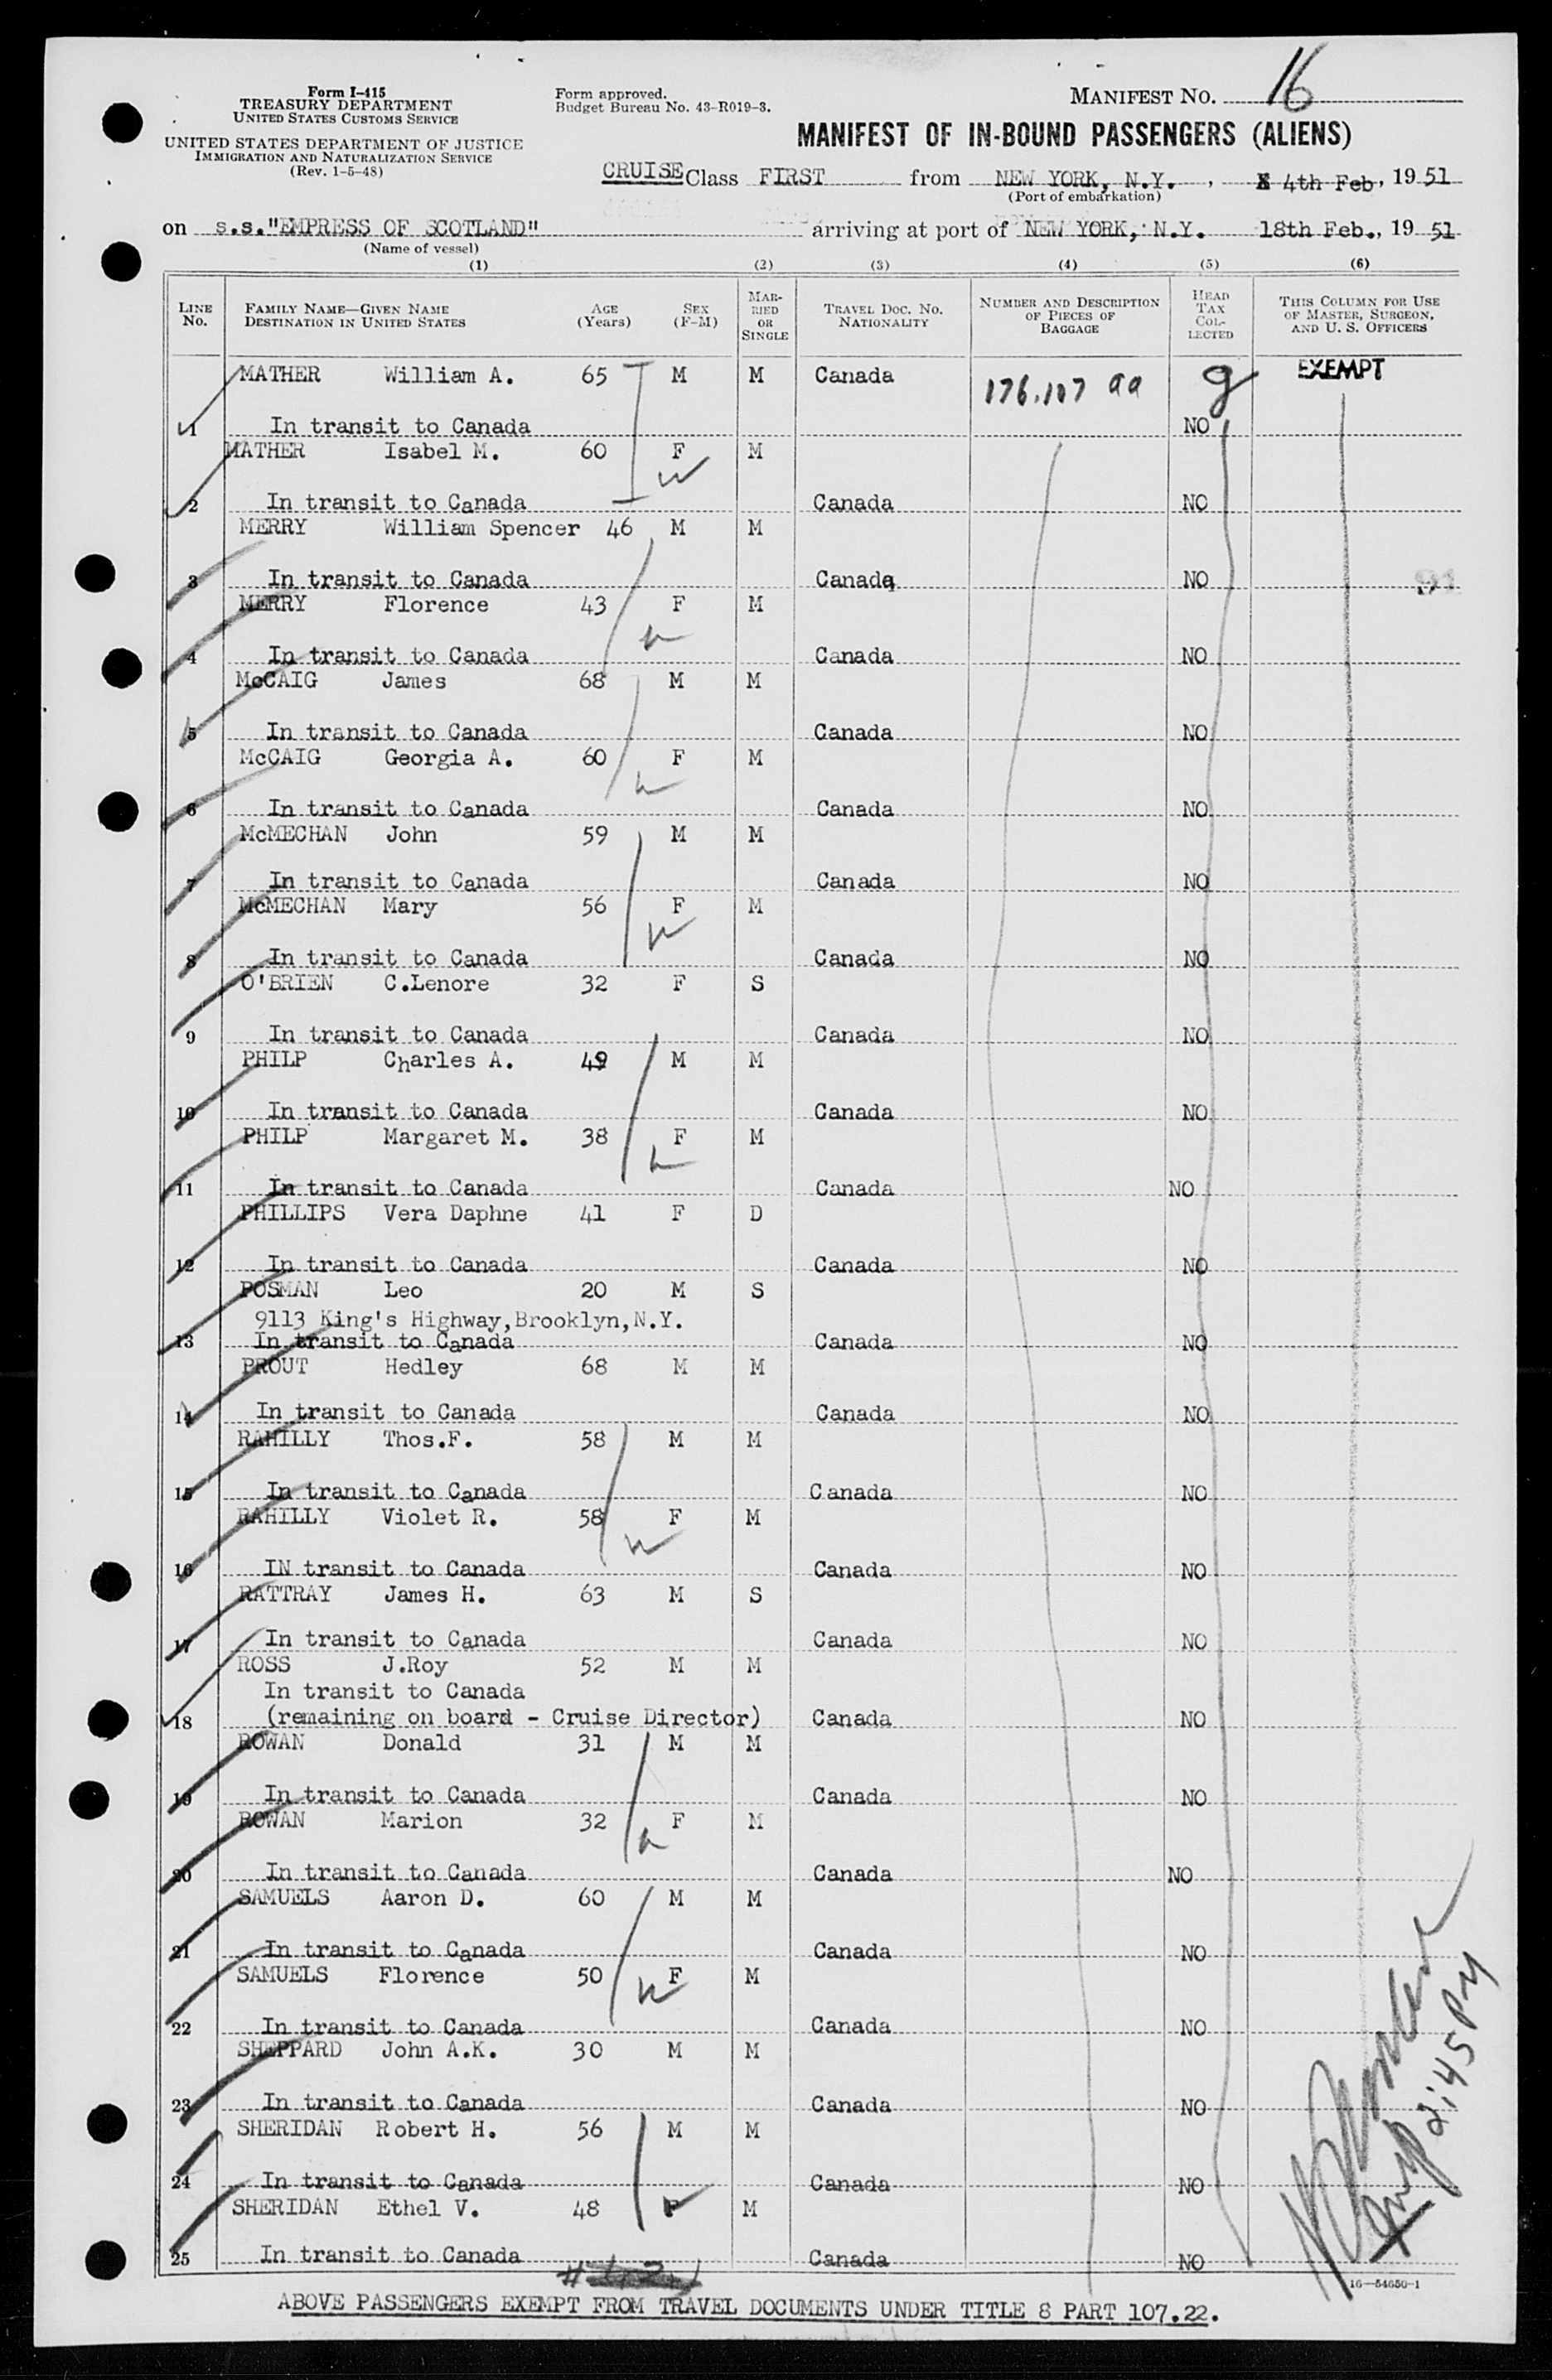 Form I-415
TREASURY DEPARTMENT
UNITED STATES CUSTOMS SERVICE
UNITED STATES DEPARTMENT OF JUSTICE
IMMIGRATION AND NATURALIZATION SERVICE
(Rev. 1-5-48)
Form approved.
Budget Bureau No. 43-R019-3.
MANIFEST NO. 16
MANIFEST OF IN-BOUND PASSENGERS (ALIENS)
CRUISE Class FIRST from NEW YORK, N.Y., 4th Feb, 1951
(Port of embarkation)
on s.s."EMPRESS OF SCOTLAND" arriving at port of NEW YORK, N.Y. 18th Feb., 1951
(Name of vessel)
(1) (2) (3) (4) (5) (6)
LINE NO. FAMILY NAME—GIVEN NAME DESTINATION IN UNITED STATES AGE (Years) SEX (F-M) MARRIED OR SINGLE TRAVEL DOC. NO. NATIONALITY NUMBER AND DESCRIPTION OF PIECES OF BAGGAGE HEAD TAX COLLECTED THIS COLUMN FOR USE OF MASTER, SURGEON, AND U. S. OFFICERS
MATHER William A. 65 M M Canada 176.107 aa g EXEMPT
1 In transit to Canada NO
MATHER Isabel M. 60 F M
2 In transit to Canada Canada NO
MERRY William Spencer 46 M M
3 In transit to Canada Canada NO 91
MERRY Florence 43 F M
4 In transit to Canada Canada NO
McCAIG James 68 M M
5 In transit to Canada Canada NO
McCAIG Georgia A. 60 F M
6 In transit to Canada Canada NO
McMECHAN John 59 M M
7 In transit to Canada Canada NO
McMECHAN Mary 56 F M
8 In transit to Canada Canada NO
O'BRIEN C.Lenore 32 F S
9 In transit to Canada Canada NO
PHILP Charles A. 49 M M
10 In transit to Canada Canada NO
PHILP Margaret M. 38 F M
11 In transit to Canada Canada NO
PHILLIPS Vera Daphne 41 F D
12 In transit to Canada Canada NO
POSMAN Leo 20 M S
9113 King's Highway,Brooklyn,N.Y.
13 In transit to Canada Canada NO
PROUT Hedley 68 M M
14 In transit to Canada Canada NO
RAHILLY Thos.F. 58 M M
15 In transit to Canada Canada NO
RAHILLY Violet R. 58 F M
16 IN transit to Canada Canada NO
RATTRAY James H. 63 M S
17 In transit to Canada Canada NO
ROSS J.Roy 52 M M
In transit to Canada
18 (remaining on board - Cruise Director) Canada NO
ROWAN Donald 31 M M
19 In transit to Canada Canada NO
ROWAN Marion 32 F M
20 In transit to Canada Canada NO
SAMUELS Aaron D. 60 M M
21 In transit to Canada Canada NO
SAMUELS Florence 50 F M
22 In transit to Canada Canada NO
SHEPPARD John A.K. 30 M M
23 In transit to Canada Canada NO
SHERIDAN Robert H. 56 M M
24 In transit to Canada Canada NO
SHERIDAN Ethel V. 48 F M
25 In transit to Canada Canada NO
2:45 PM
16—54650-1
ABOVE PASSENGERS EXEMPT FROM TRAVEL DOCUMENTS UNDER TITLE 8 PART 107.22.